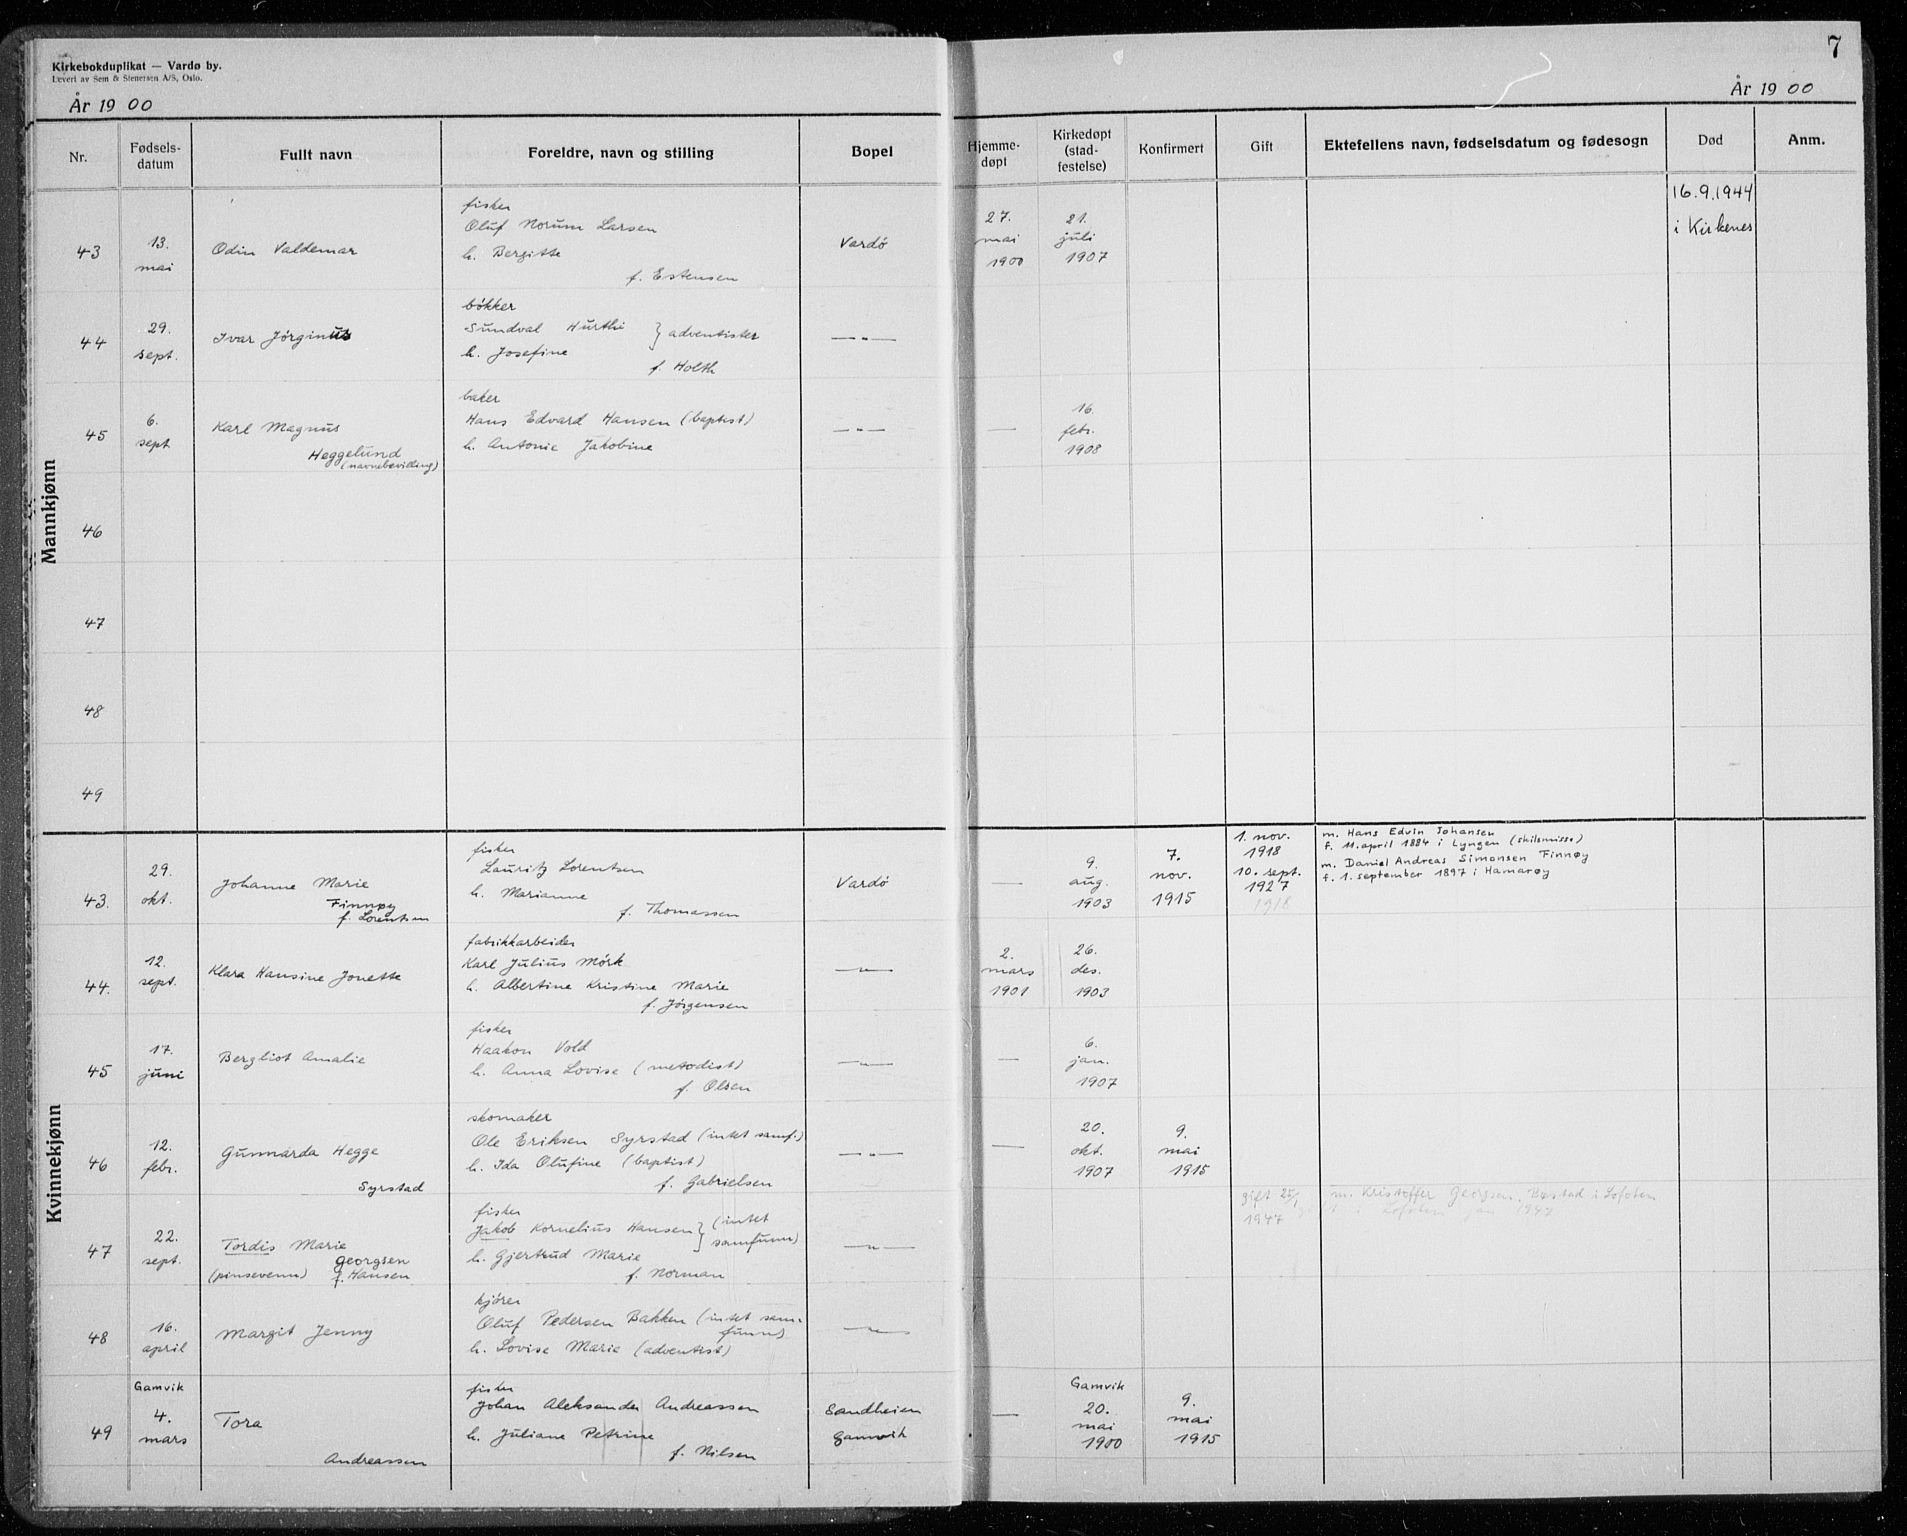 Kirkebokduplikat — Vardø by.
Levert av Sem & Stenersen A/S, Oslo.
År 1900
7
År 1900
Nr.
Fødsels-
datum
Fullt navn
Foreldre, navn og stilling
Bopel
Hjemme-
døpt
Kirkedøpt
(stad-
festelse)
Konfirmert
Gift
Ektefellens navn, fødselsdatum og fødesogn
Død
Anm.
Mannkjønn
43
13.
mai
Odin Valdemar
fisker
Oluf Norum Larsen
h. Bergitte
f. Estensen
Vardö
27.
mai
1900
21.
juli
1907
16.9.1944
i Kirkenes
44
29.
sept.
Ivar Jörginus
bökker
Sundval Hurthi } adventister
h. Josefine
f. Holth
— „ —
45
6.
sept
Karl Magnus
Heggelund
(navnebevilling)
baker
Hans Edvard Hansen (baptist)
h. Antonie Jakobine
— „ —
—
16.
febr.
1908
46
47
48
49
Kvinnekjønn
43.
29.
okt.
Johanne Marie
Finnøy
f. Lorentsen
fisker
Lauritz Lorentsen
h. Marianne
f. Thomassen
Vardö
—
9.
aug.
1903
7.
nov.
1915
1. nov.
1918
10. sept.
1927
1918
m. Hans Edvin Johansen
f. 11. april 1884 i Lyngen (skilsmisse)
m. Daniel Andreas Simonsen Finnøy
f. 1. september 1897 i Hamarøy
44.
12.
sept.
Klara Hansine Jonette
fabrikkarbeider
Karl Julius Mörk
h. Albertine Kristine Marie
f. Jörgensen
— „ —
2.
mars
1901
26.
des.
1903
45
17.
juni
Bergliot Amalie
fisker
Haakon Vold
h. Anna Lovise (metodist)
f. Olsen
— „ —
—
6.
jan.
1907
46
12.
febr.
Gunnarda Hegge
Syrstad
skomaker
Ole Eriksen Syrstad (intet samf.)
h. Ida Olufine (baptist)
f. Gabrielsen
— „ —
—
20.
okt.
1907
9.
mai
1915
47
22.
sept.
Tordis Marie
Georgsen
(pinsevenn) f. Hansen
fisker
Jakob Kornelius Hansen } (intet
h. Gjertrud Marie samfunn)
f. Norman
— „ —
gift 25/1
1947
m. Kristoffer Georgsen. Bøstad i Lofoten
gift i Lofoten jan 1947
48
16.
april
Margit Jenny
kjörer
Oluf Pedersen Bakken (intet sam-
funn)
h. Lovise Marie (adventist)
— „ —
49
Gamvik
4.
mars
Tora
Andreassen
fisker
Johan Aleksander Andreassen
h. Juliane Petrine
f. Nilsen
Sandheien
Gamvik
—
Gamvik
20.
mai
1900
9.
mai
1915